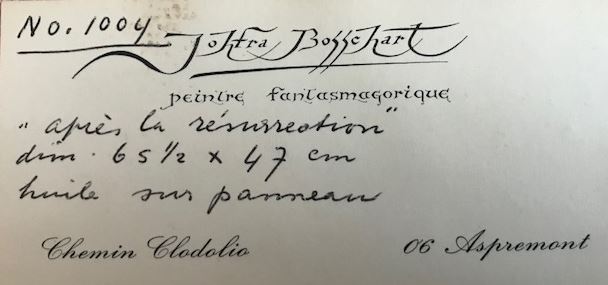 No. 1004
Johfra Bosschart
peintre fantasmagorique
"après la résurrection"
dim. 65 1/2 x 47 cm
huile sur panneau
Chemin Clodolio 06 Aspremont